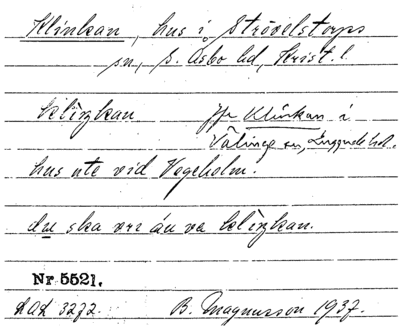 Klinkan, hus i Strövelstorps
sn, S. Åsbo hd, Krist. l.
klìŋkan Jfr Klinkan i
Välinge sn, Luggude hd.
hus ute vid Vegeholm.
du ska vre án va klìŋkan.
Nr 5521.
LAL 3272. B. Magnusson 1937.